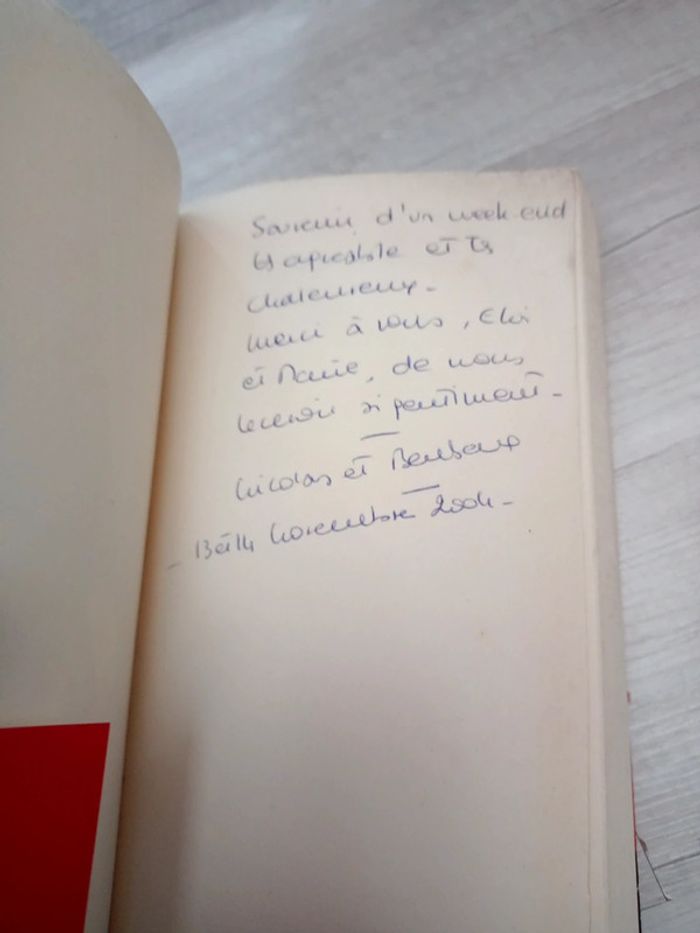 Souvenir d'un week-end
ts agréable et ts
chaleureux.
merci à vous,
et Marie, de nous
recevoir si gentiment.
Nicolas et
- 13 et 14 novembre 2004 -